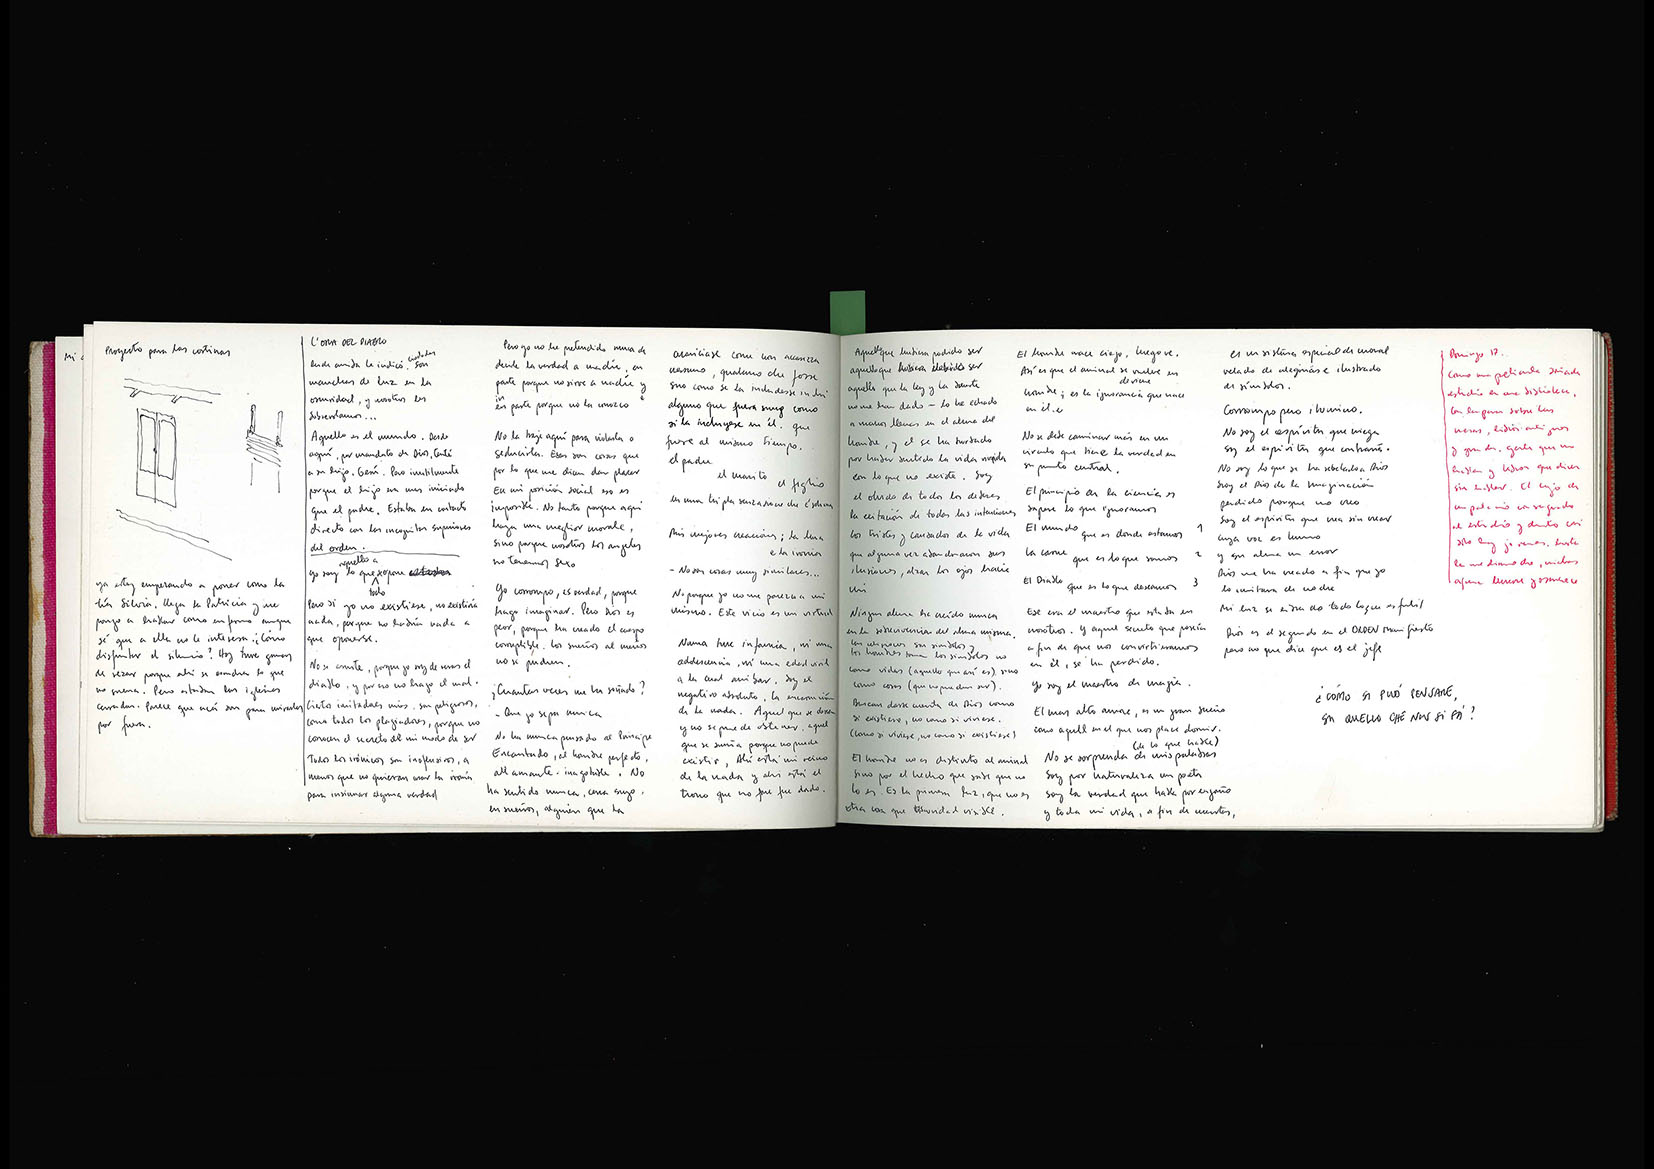 Mi
Proyecto para las cortinas
ya estoy empezando a poner como la
tía Silvia. llega la Patricia y me
pongo a hablar como enfermo aunque
sé que a ella no le interesa. ¿Cómo
disfrutar el silencio? Hoy tuve ganas
de rezar porque ahí se nombra lo que
no suena. Pero estaban las iglesias
cerradas. Parece que acá son para mirarlas
por fuera.
L'ORA DEL DIABLO
le indicó ciudades son
manchas de luz en la
oscuridad, y nosotros les
sobrevolamos...
Aquello es el mundo. Desde
aquí, por mandato de Dios, tenté
a su hijo. Gesù. Pero inutilmente
porque el hijo era mas iniciado
que el padre. Estaba en contacto
directo con los incognitos superiores
del orden.
yo soy lo que se opone aquello a
todo
Pero si yo no existiese, no existiría
nada, porque no habría nada a
que oponerse.
No se asuste, porque yo soy de veras el
diablo, y por eso no hago el mal.
Cierto imitadores mios. son peligrosos,
como todos los plagiadores, porque no
conocen el secreto del mi modo de ser
Todos los irónicos son inofensivos, a
menos que no quieran usar la ironía
para insinuar alguna verdad
Pero yo no he pretendido nunca de
decirle la verdad a nadie, en
parte porque no sirve a nadie y
en parte porque no la conozco
No la traje aquí para violarla o
seducirla. Esas son cosas que
por lo que me dicen dan placer
En mi posición social eso es
imposible. No tanto porque aquí
haya una meglior morale,
sino porque nosotros los angeles
no tenemos sexo
Yo corrompo, es verdad, porque
hago imaginar. Pero Dios es
peor, porque ha creado el cuerpo
corruptible. los sueños al menos
no se pudren.
¿Cuantas veces me ha soñado?
- Que yo sepa nunca
No ha nunca pensado al Principe
Encantado, al hombre perfecto,
all'amante inagotable. No
ha sentido nunca, cerca suyo,
en sueños, alguien que la
acariciase como nos accarezza
nessuno, qualcuno che fosse
suo come se la includesse in lui
alguno que fuera suyo como
si la incluyese en él. que
fuese al mismo tiempo.
el padre
el marito
el figlio
en una tripla sensazione che è solo una
Mis mejores creaciones; la luna
e la ironía
- No son cosas muy similares...
No porque yo no me parezca a mi
mismo. Este vicio es mi virtud
Nunca tuve infancia, ni una
adolescencia, ni una edad viril
a la cual arribar. Soy el
negativo absoluto, la encarnación
de la nada. Aquel que se desea
y no se puede obtener, aquel
que se sueña porque no puede
existir, Ahí está mi reino
de la nada y ahí está el
trono que no fue fue dado.
Aquel que hubiera podido ser
aquello que hubiera debido ser
aquello que la ley y la suerte
no me han dado - lo he echado
a manos llenas en el alma del
hombre, y él se ha turbado
por haber sentido la vida
con lo que no existe. Soy
el olvido de todos los deberes
la exitación de todas las intenciones
Los tristes y cansados de la vida
que alguna vez abandonaron sus
ilusiones, alzan los ojos hacia
mi
Ningun alma ha creído nunca
en la sobrevivencia del alma misma.
los hombres toman los símbolos no
como vidas (aquello que así es) sino
como cosas (que no pueden ser).
Buscan darse cuenta de Dios como
si existiera, no como si viviese.
(como si viviese, no como si existiese)
El hombre no es distinto al animal
sino por el hecho que sabe que no
lo es. Es la primera luz, que no es
otra cosa que tenebridad visible.
El hombre nace ciego, luego ve.
Así es que el animal se vuelve en
deviene
hombre; es la ignorancia que nace
en él.
No se debe caminar más en un
circulo que tiene la verdad en
su punto central.
El principio de la ciencia es
sapere lo que ignoramos
El mundo que es donde estamos 1
la carne que es lo que somos 2
El Diablo que es lo que deseamos 3
Ese era el maestro que estaba en
nosotros. Y aquel secreto que poseía
a fin de que nos convirtieramos
en él, se ha perdido.
Yo soy el maestro de magia.
El mas alto amore, es un gran sueño
como aquell en el que nos place dormir.
(de lo que hable)
No se sorprenda de mis palabras
Soy por naturaleza un poeta
Soy la verdad que habla por engaño
y toda mi vida, a fin de cuentas,
es un sistema especial de moral
velado de alegorías e ilustrado
de símbolos.
Corrompo pero ilumino.
No soy el espíritu que niega
soy el espíritu que contraría.
No soy lo que se ha rebelado a Dios
Soy el Dios de la Imaginación
perdido porque no creo
Soy el espíritu que crea sin crear
cuya voz es humo
y su alma un error
Dios me ha creado a fin que yo
lo imitara de noche
Mi luz se sobre todo lo que es fútil
Dios es el segundo en el ORDEN manifiesto
pero no que dice que es el jefe
¿CÓMO SI PUÓ PENSARE,
SU QUELLO CHE NON SI PÁ?
Domingo 17.
Como una película soñada
estudio en una biblioteca,
lámparas sobre las
mesas, libros antiguos
y grandes. gente que no
hablan y libros que dicen
sin hablar. El lujo de
un palacio
el estudio y dentro casi
sólo hay jóvenes.